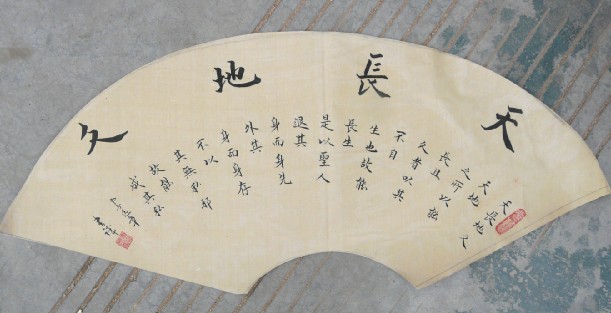 天長地久
天長地久
天地
之所以能
長且
久者以其
不自
生也故能
長生
是以聖人
退其
身而身先
外其
身而身存
不以
其無私邪
故能
成其私